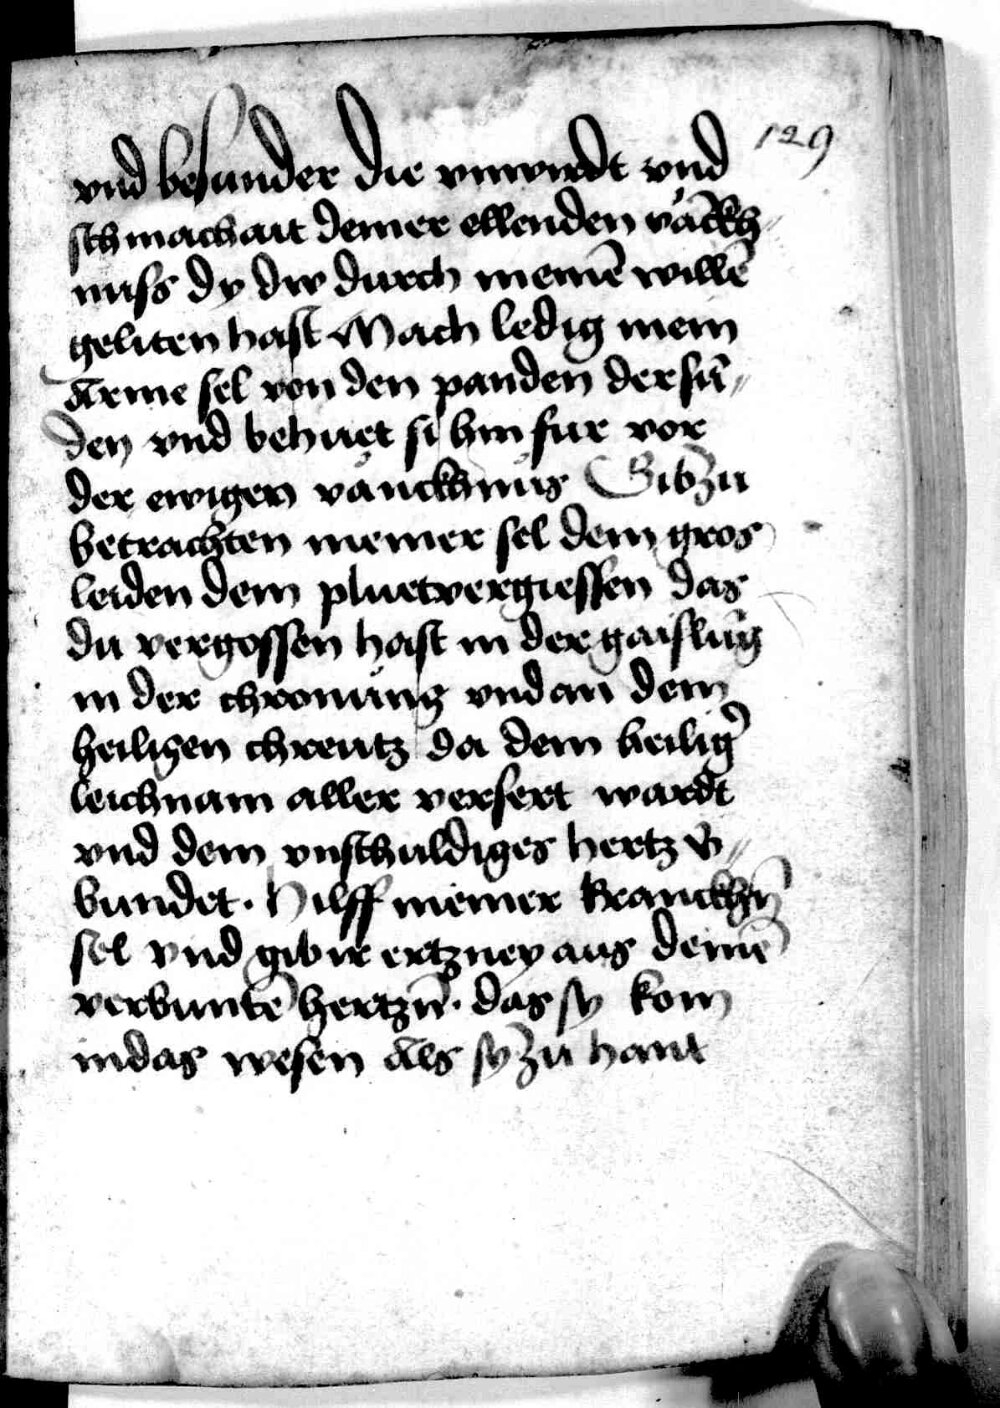 129
vnd besunder die vnwirdt vnd
schmachait deiner ellenden väckh„
nuss dy dw durch meinē willē
geliten hast Mach ledig mein
Arme sel von den panden der sü„
den vnd behuet si hin fur vor
der ewigen vänckhnus Gib zu
betrachten meiner sel dein gros
leiden dein pluetvergiessen das
du vergossen hast in der gaislūg
in der chronung vnd an dem
heiligen chreutz da dein heilig̉
leichnam aller versert wardt
vnd dein vnschuldiges hertz v̉„
bundet. Hilff meiner kranckhn̄
sel vnd gib ir ertzney aus deinē
verbuntē hertzn̄. das sy kom
in das wesen Als sy zu hant